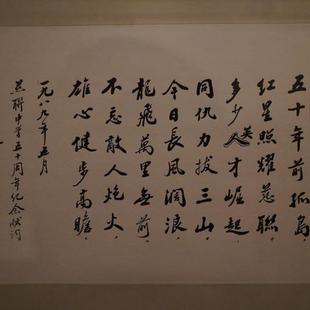 五十年前孤島
红星照耀慈聯
多少英才崛起，
同仇力拔三山。
今日長風濶浪，
龍飛萬里無前。
不忘敵人炮火，
雄心健步高瞻。
一九八九年五月
聯中学五十周年纪念献词